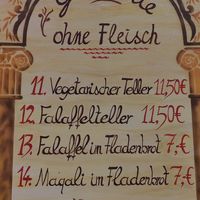 ohne Fleisch
11. Vegetarischer Teller 11,50€
12. Falaffelteller 11,50€
13. Falaffel im Fladenbrot 7,-€
14. Maqali im Fladenbrot 7,-€